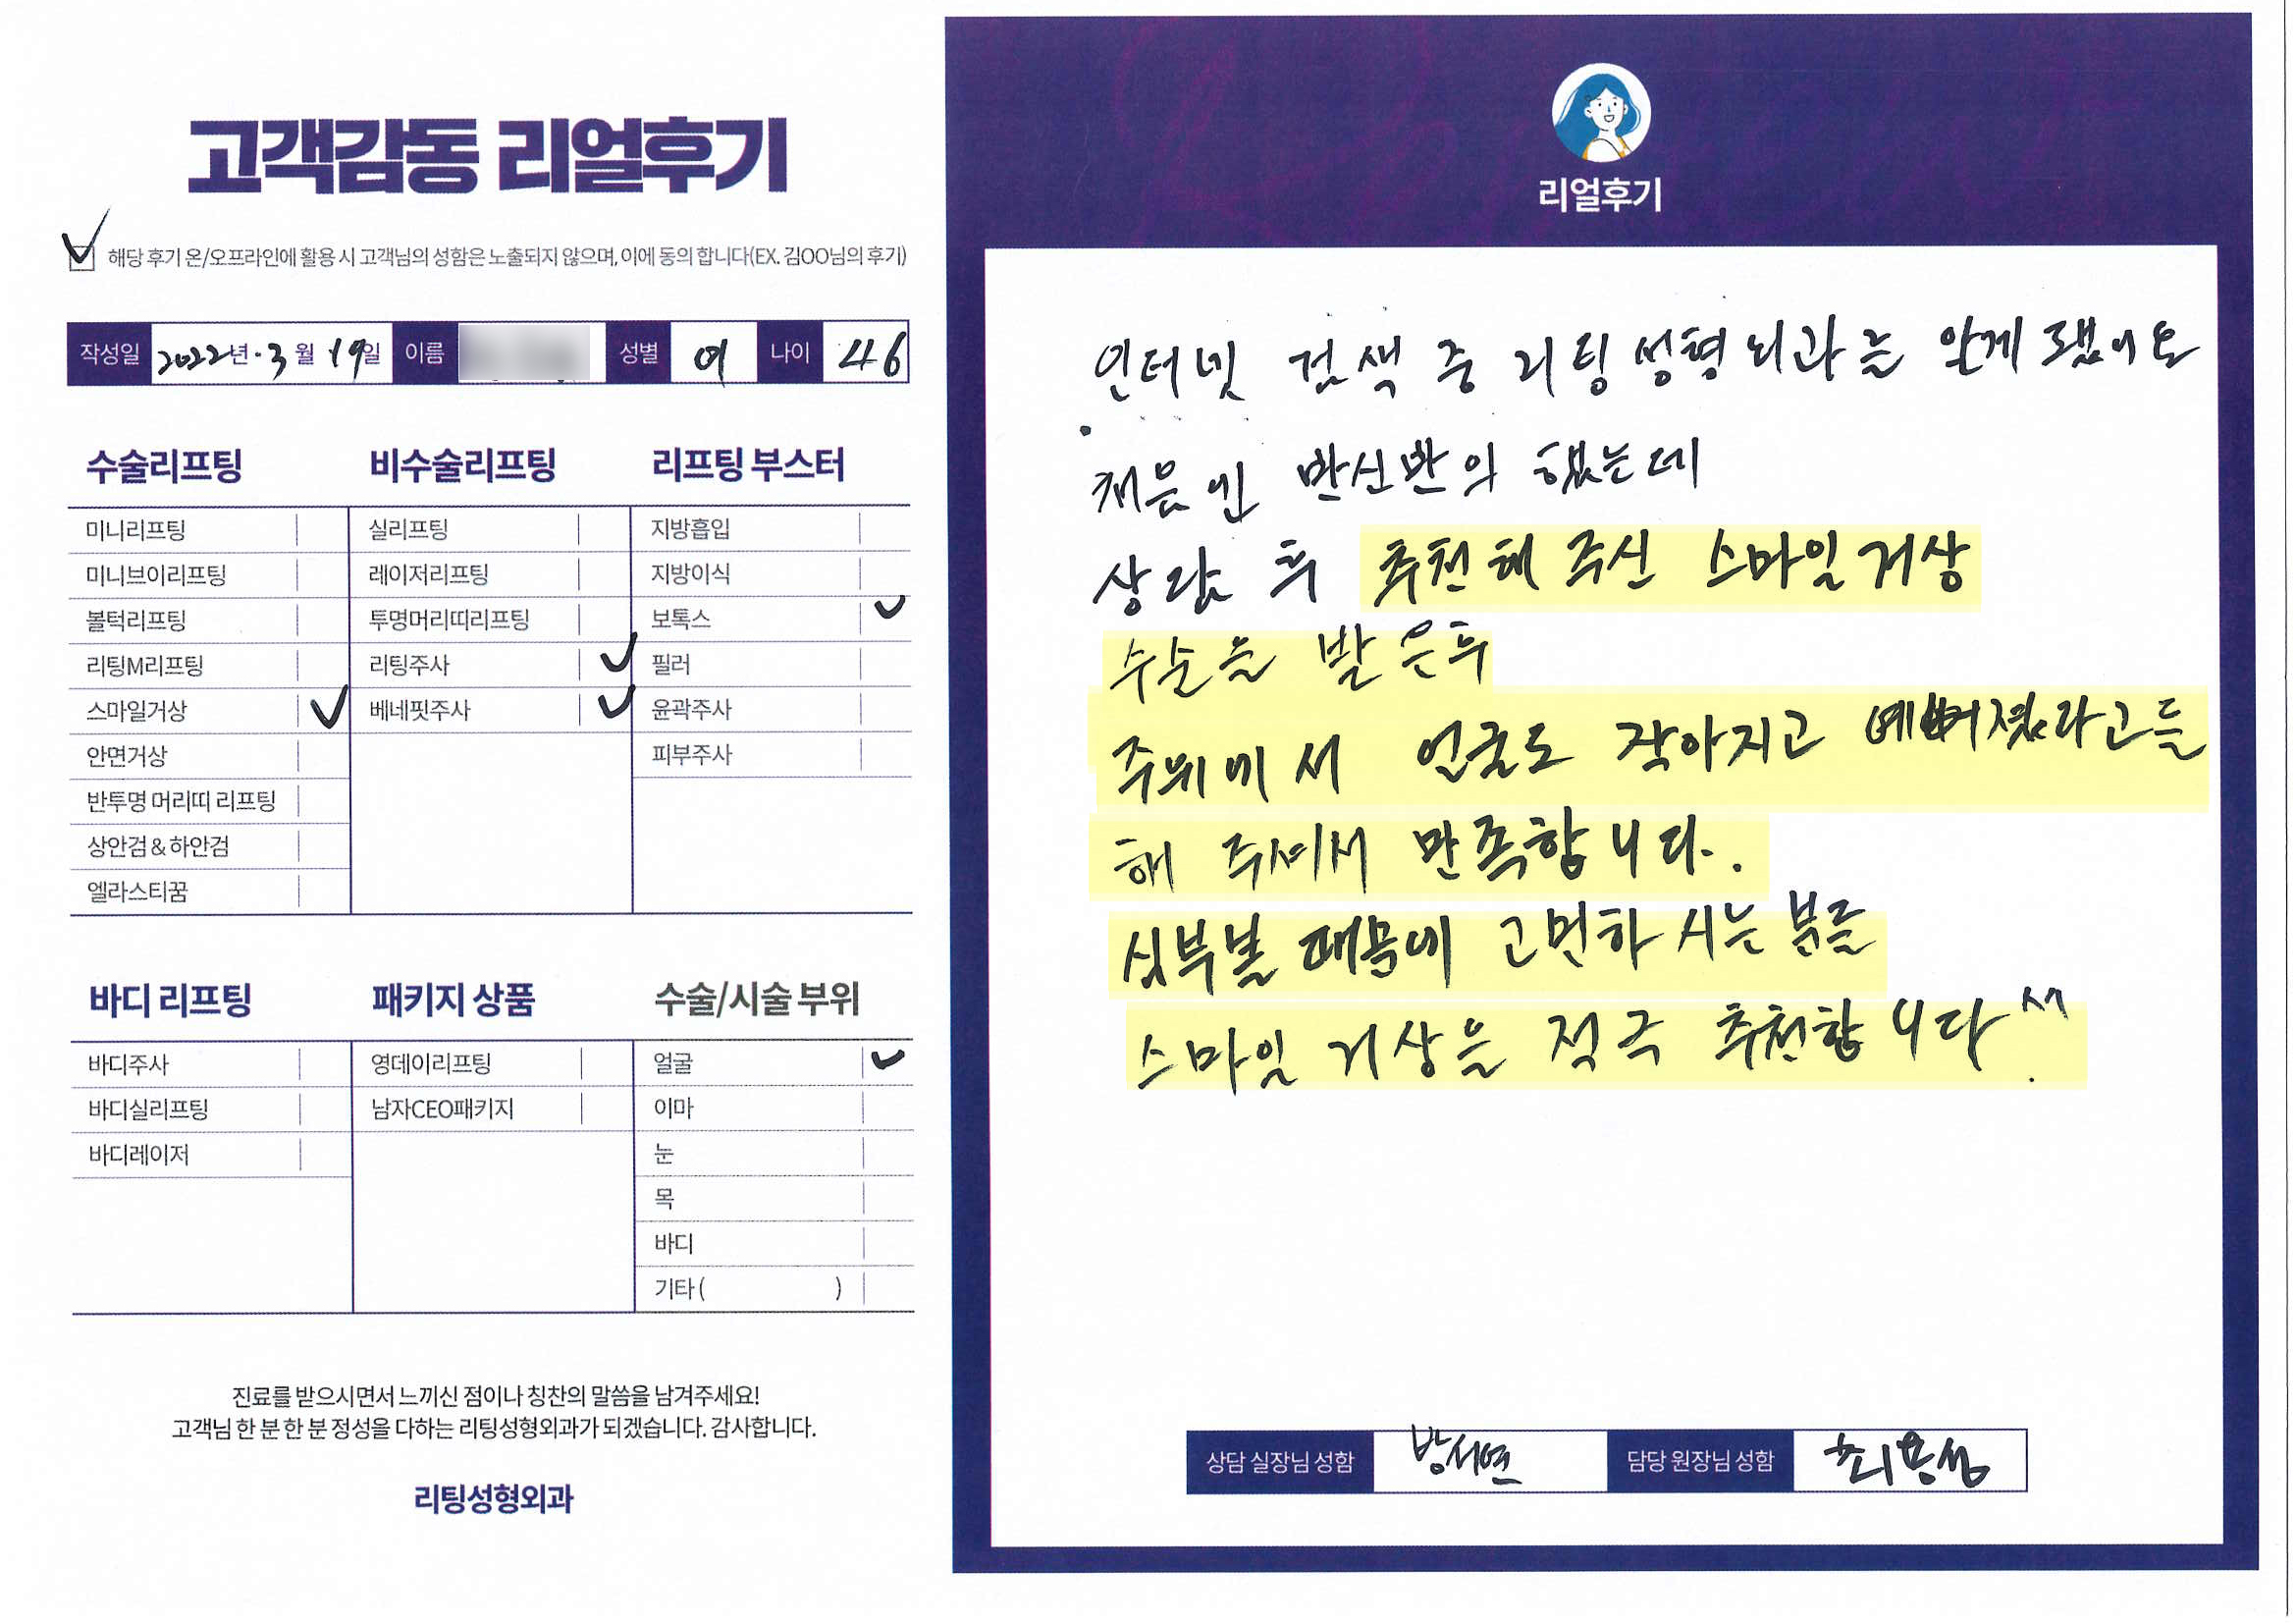 고객감동 리얼후기
해당 후기 온/오프라인에 활용 시 고객님의 성함은 노출되지 않으며, 이에 동의 합니다(EX. 김OO님의 후기)
작성일 2022년. 3월 19일 이름 성별 여 나이 46
수술리프팅
미니리프팅
미니브이리프팅
볼턱리프팅
리팅M리프팅
스마일거상
안면거상
반투명 머리띠 리프팅
상안검 & 하안검
엘라스티꿈
비수술리프팅
실리프팅
레이저리프팅
투명머리띠리프팅
리팅주사
베네핏주사
리프팅 부스터
지방흡입
지방이식
보톡스
필러
윤곽주사
피부주사
바디 리프팅
바디주사
바디실리프팅
바디레이저
패키지 상품
영데이리프팅
남자CEO패키지
수술/시술 부위
얼굴
이마
눈
목
바디
기타 ( )
진료를 받으시면서 느끼신 점이나 칭찬의 말씀을 남겨주세요!
고객님 한 분 한 분 정성을 다하는 리팅성형외과가 되겠습니다. 감사합니다.
리팅성형외과
리얼후기
인터넷 검색 중 리팅성형외과를 알게 됐어요
처음엔 반신반의 했는데
상담 후 추천해 주신 스마일거상
수술을 받은후
주위에서 얼굴도 작아지고 예뻐졌라고들
해 주셔서 만족합니다.
심부볼 때문에 고민하시는 분들
스마일 거상을 적극 추천합니다
상담 실장님 성함 방서연 담당 원장님 성함